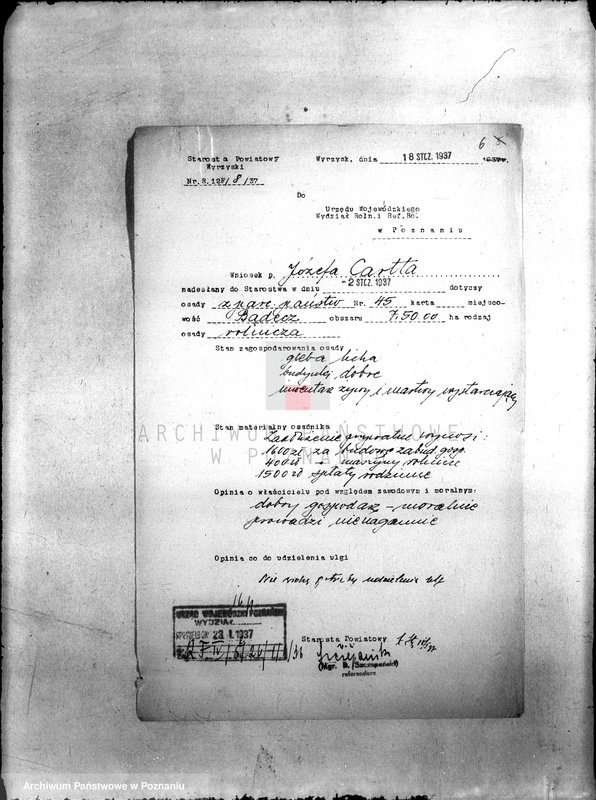 6
Starosta Powiatowy
Wyrzyski
Nr. R. 12F/8/37
Wyrzysk, dnia 18 STCZ. 1937
Do
Urzędu Wojewódzkiego
Wydział Roln. i Ref. Ro.
w Poznaniu
Wniosek p. Józefa Cartta
nadesłany do Starostwa w dniu - 2 STCZ. 1937 dotyczy
osady z parc. państw Nr. 45 karta miejsco-
wość Bądecz obszaru 7.50.00 ha rodzaj
osady rolnicza
Stan zagospodarowania osady
gleba licha
budynki dobre
inwentarz żywy i martwy wystarczający
ARCHIWUM PAŃSTWOWE
W POZNANIU
Stan materialny osadnika
Zadłużenie prywatne wynosi:
1600 zł za budowę zabud. gosp.
400 zł - maszyny rolnicze
1500 zł spłaty rodzinne
Opinia o właścicielu pod względem zawodowym i moralnym:
dobry gospodarz - moralnie
prowadzi nienagannie
Opinia co do udzielenia ulgi
Nie widzę potrzeby udzielenia ulg
URZĄD WOJEWÓDZKI POZNAŃSKI
WYDZIAŁ
23. I. 1937
Starosta Powiatowy
(Mgr. B. Szczepański)
referendarz
Archiwum Państwowe w Poznaniu